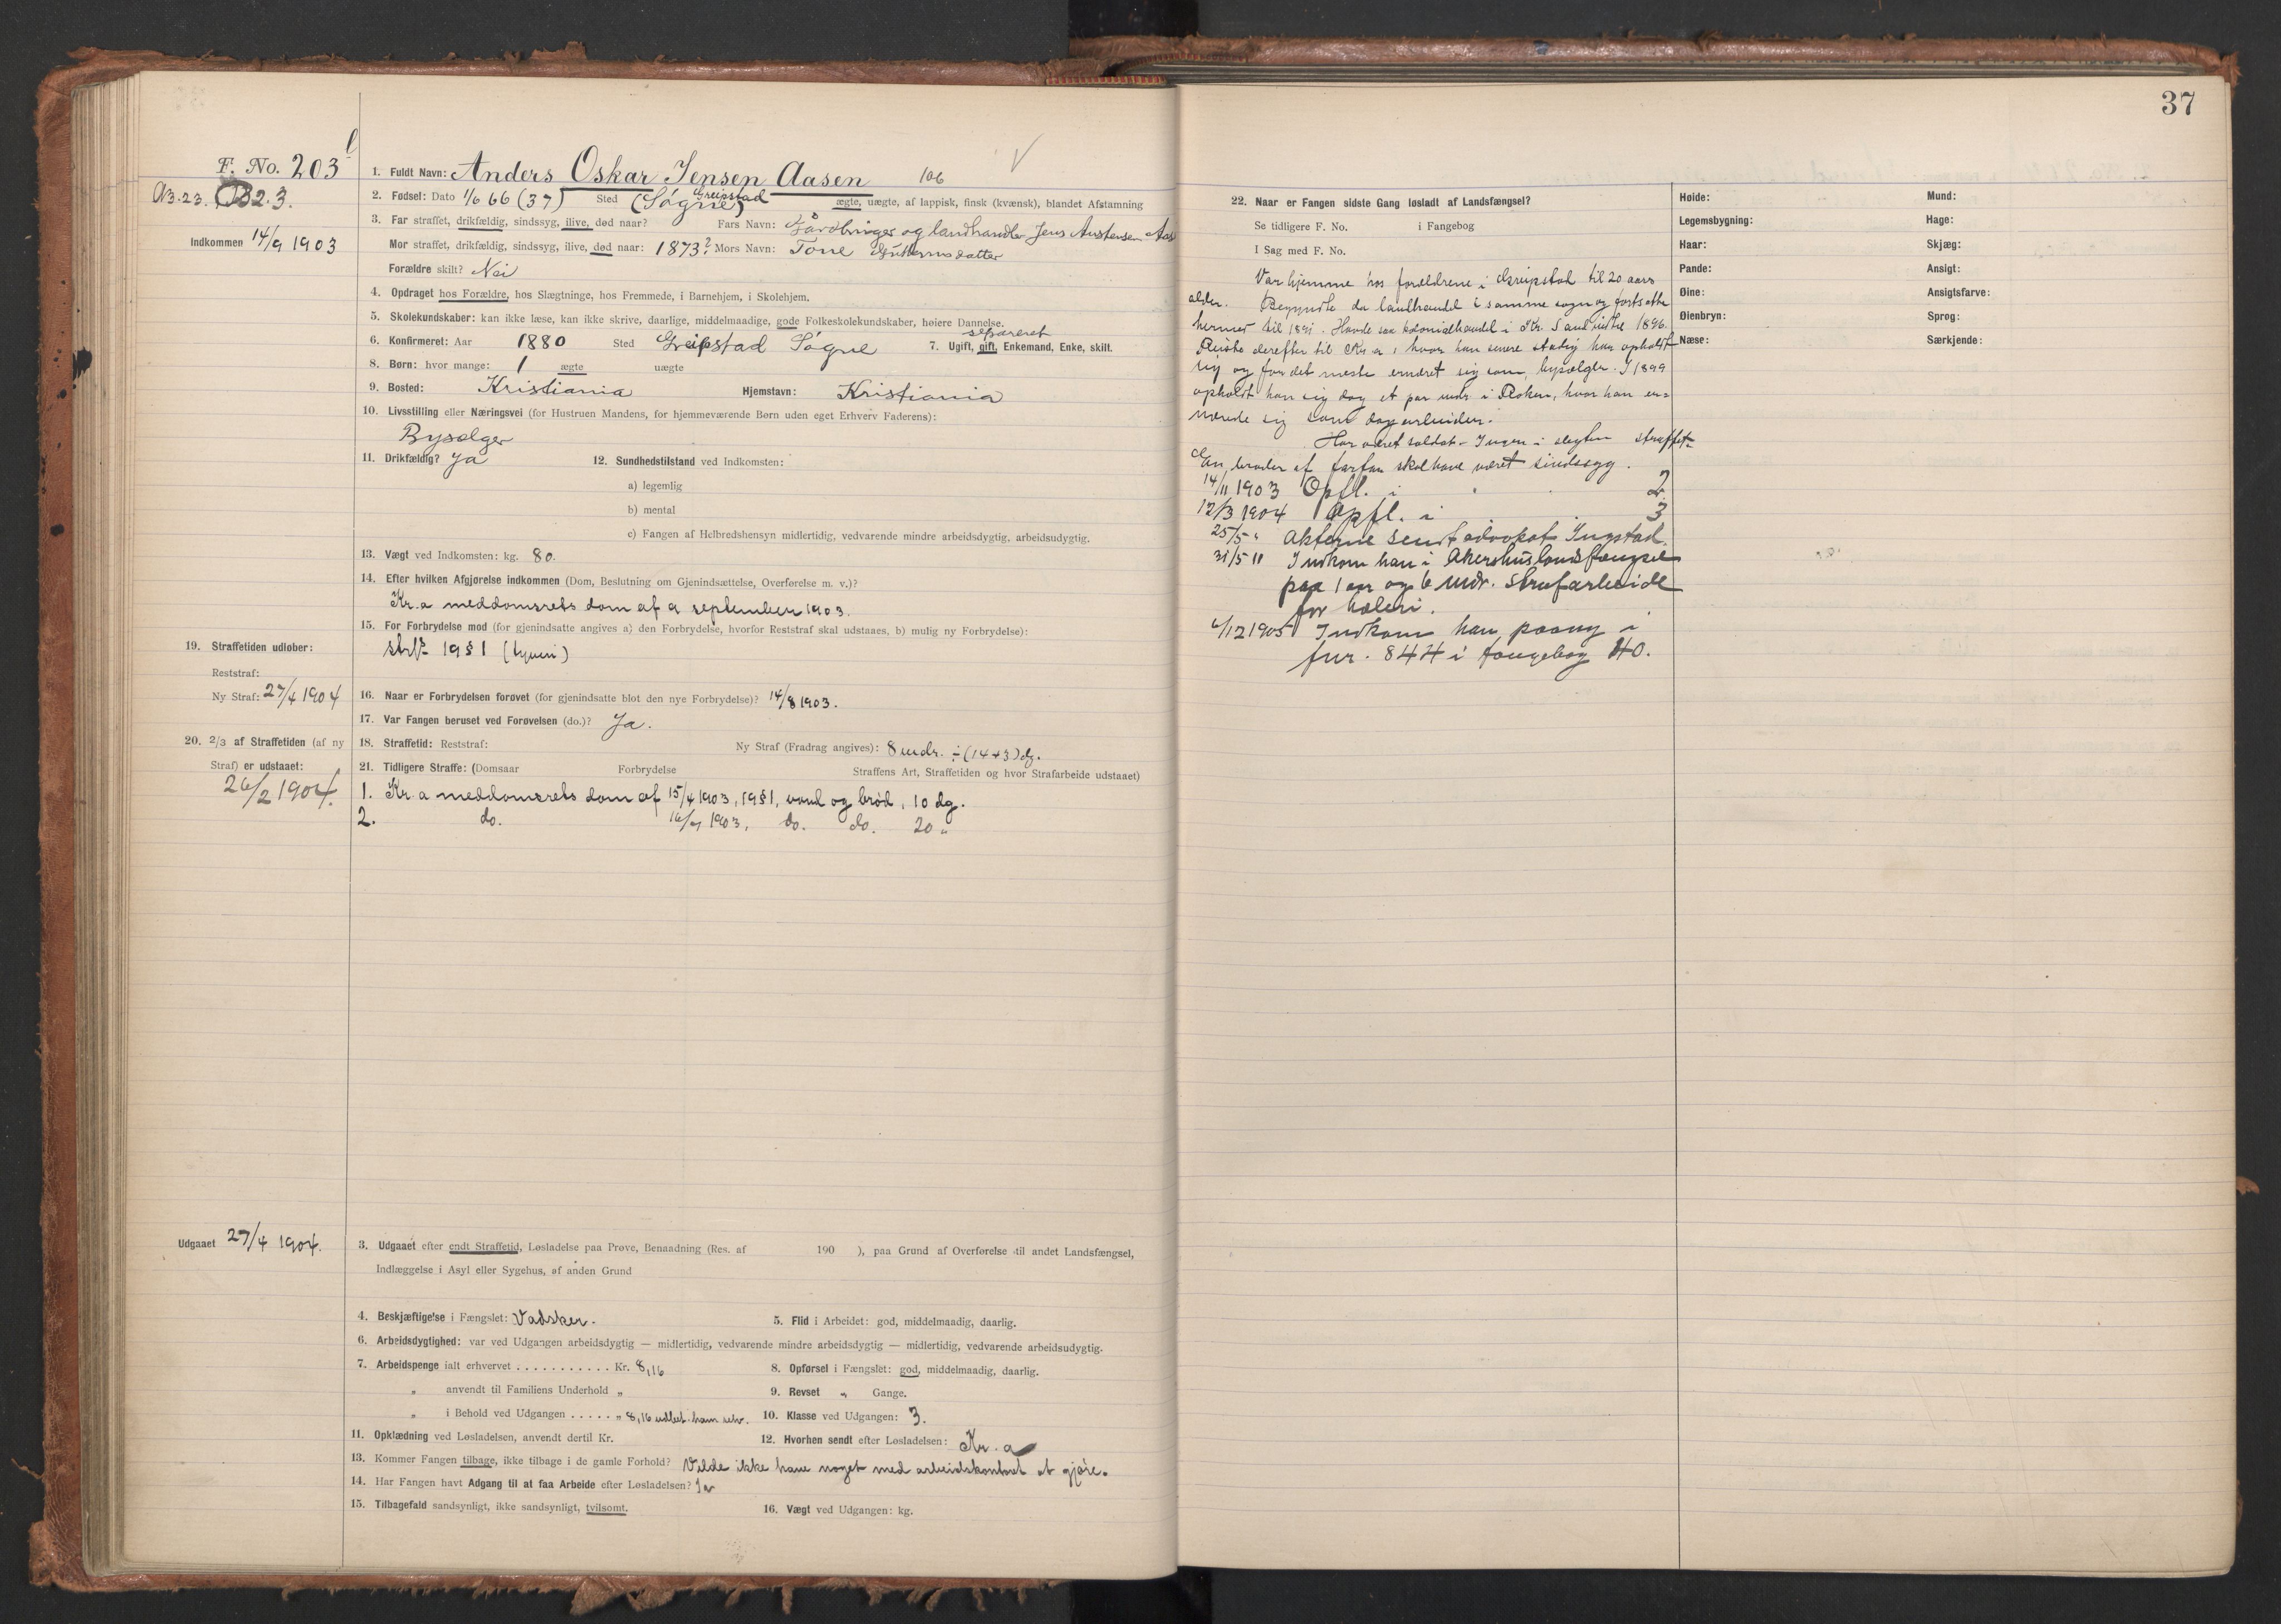 37
F. No. 203
A3.23. B2.3.
Indkommen 14/9 1903
1. Fuldt Navn: Anders Oskar Jensen Aasen 106 V
2. Fødsel: Dato 1/6 66 (37) Sted (Søgne) Greipstad ægte, uægte, af lappisk, finsk (kvænsk), blandet Afstamning
3. Far straffet, drikfældig, sindssyg, ilive, død naar? Fars Navn: Gårdbruger og landhandler Jens Austensen Aas
Mor straffet, drikfældig, sindssyg, ilive, død naar: 1873? Mors Navn: Tone Guttormsdatter
Forældre skilt? Nei
4. Opdraget hos Forældre, hos Slægtninge, hos Fremmede, i Barnehjem, i Skolehjem.
5. Skolekundskaber: kan ikke læse, kan ikke skrive, daarlige, middelmaadige, gode Folkeskolekundskaber, høiere Dannelse.
separeret
6. Konfirmeret: Aar 1880 Sted Greipstad Søgne 7. Ugift, gift, Enkemand, Enke, skilt.
8. Børn: hvor mange: 1 ægte uægte
9. Bosted: Kristiania Hjemstavn: Kristiania
10. Livsstilling eller Næringsvei (for Hustruen Mandens, for hjemmeværende Børn uden eget Erhverv Faderens):
Bysælger
11. Drikfældig? Ja 12. Sundhedstilstand ved Indkomsten:
a) legemlig
b) mental
c) Fangen af Helbredshensyn midlertidig, vedvarende mindre arbeidsdygtig, arbeidsudygtig.
13. Vægt ved Indkomsten: kg. 80.
14. Efter hvilken Afgjørelse indkommen (Dom, Beslutning om Gjenindsættelse, Overførelse m. v.)?
Kr.a meddomsrets dom af 9 september 1903.
15. For Forbrydelse mod (for gjenindsatte angives a) den Forbrydelse, hvorfor Reststraf skal udstaaes, b) mulig ny Forbrydelse):
strfl 19 § 1 (tyveri)
19. Straffetiden udløber:
Reststraf:
Ny Straf: 27/4 1904
16. Naar er Forbrydelsen forøvet (for gjenindsatte blot den nye Forbrydelse)? 14/8 1903.
17. Var Fangen beruset ved Forøvelsen (do.)? Ja.
20. 2/3 af Straffetiden (af ny
Straf) er udstaaet:
26/2 1904.
18. Straffetid: Reststraf: Ny Straf (Fradrag angives): 8 mdr. ÷ (14+3) dg.
21. Tidligere Straffe: (Domsaar Forbrydelse Straffens Art, Straffetiden og hvor Strafarbeide udstaaet)
1. Kr.a meddomsrets dom af 15/4 1903, 19 § 1, vand og brød, 10 dg.
2. do. 1903, do. do. 20 "
Udgaaet 27/4 1904.
3. Udgaaet efter endt Straffetid, Løsladelse paa Prøve, Benaadning (Res. af 190 ), paa Grund af Overførelse til andet Landsfængsel,
Indlæggelse i Asyl eller Sygehus, af anden Grund
4. Beskjæftigelse i Fængslet: Vadsker. 5. Flid i Arbeidet: god, middelmaadig, daarlig.
6. Arbeidsdygtighed: var ved Udgangen arbeidsdygtig — midlertidig, vedvarende mindre arbeidsdygtig — midlertidig, vedvarende arbeidsudygtig.
7. Arbeidspenge ialt erhvervet . . . . . . . . . . . Kr. 8,16 8. Opførsel i Fængslet: god, middelmaadig, daarlig.
" anvendt til Familiens Underhold " 9. Revset " Gange.
" i Behold ved Udgangen . . . . . " 8,16 udbet. ham selv. 10. Klasse ved Udgangen: 3.
11. Opklædning ved Løsladelsen, anvendt dertil Kr. 12. Hvorhen sendt efter Løsladelsen: Kr.a
13. Kommer Fangen tilbage, ikke tilbage i de gamle Forhold? Vilde ikke have noget med arbeidskontoret at gjøre.
14. Har Fangen havt Adgang til at faa Arbeide efter Løsladelsen? Ja
15. Tilbagefald sandsynligt, ikke sandsynligt, tvilsomt. 16. Vægt ved Udgangen: kg.
22. Naar er Fangen sidste Gang løsladt af Landsfængsel?
Se tidligere F. No. i Fangebog
I Sag med F. No.
Var hjemme hos forældrene i Greipstad til 20 aars
alder. Begyndte da landhandel i samme sogn og fortsatte
hermed til 1891. Havde saa kolonialhandel i Kr. Sand indtil 1896.
Reiste derefter til Kr.a, hvor han senere stadig har opholdt
sig og for det meste ernæret sig som bysælger. I 1899
opholdt han sig dog et par mdr. i Røken, hvor han er=
nærede sig som dagarbeider.
Har været soldat. Ingen i slegten straffet.
En broder af farfar skal have været sindssyg.
14/11 1903 Opfl. i 2.
12/3 1904 Opfl. i 3
25/5 " Akterne sendt advokat Ingstad.
31/5 11 Indkom han i Akershus landsfængsel
paa 1 aar og 6 mdr. strafarbeide
for hæleri.
6/12 1905 Indkom han paany i
fnr. 844 i fangebog 40.
Høide:
Legemsbygning:
Haar:
Pande:
Øine:
Øienbryn:
Næse:
Mund:
Hage:
Skjæg:
Ansigt:
Ansigtsfarve:
Sprog:
Særkjende: